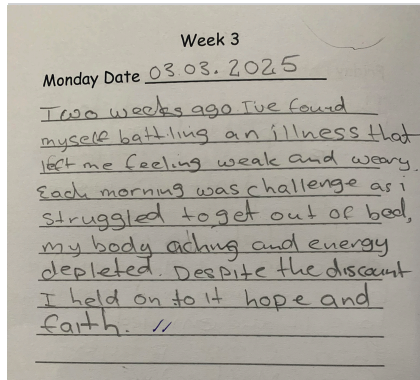 Week 3
Monday Date 03.03.2025
Two weeks ago I've found
myself battling an illness that
left me feeling weak and weary.
Each morning was challenge as i
struggled to get out of bed,
my body aching and energy
depleted. Despite the discount
I held on to it hope and
faith. //